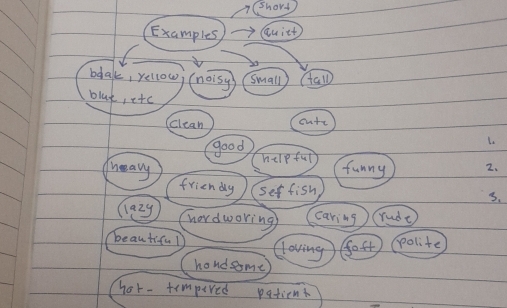 short
Examples quiet
bdak, yellow, noisy small tall
blue, etc
clean cute
good
helpful
heavy funny
friendly selfish
lazy
hardworing caring rude
beautiful loving polite
handsome
hot-tempered patient
1.
2.
3.